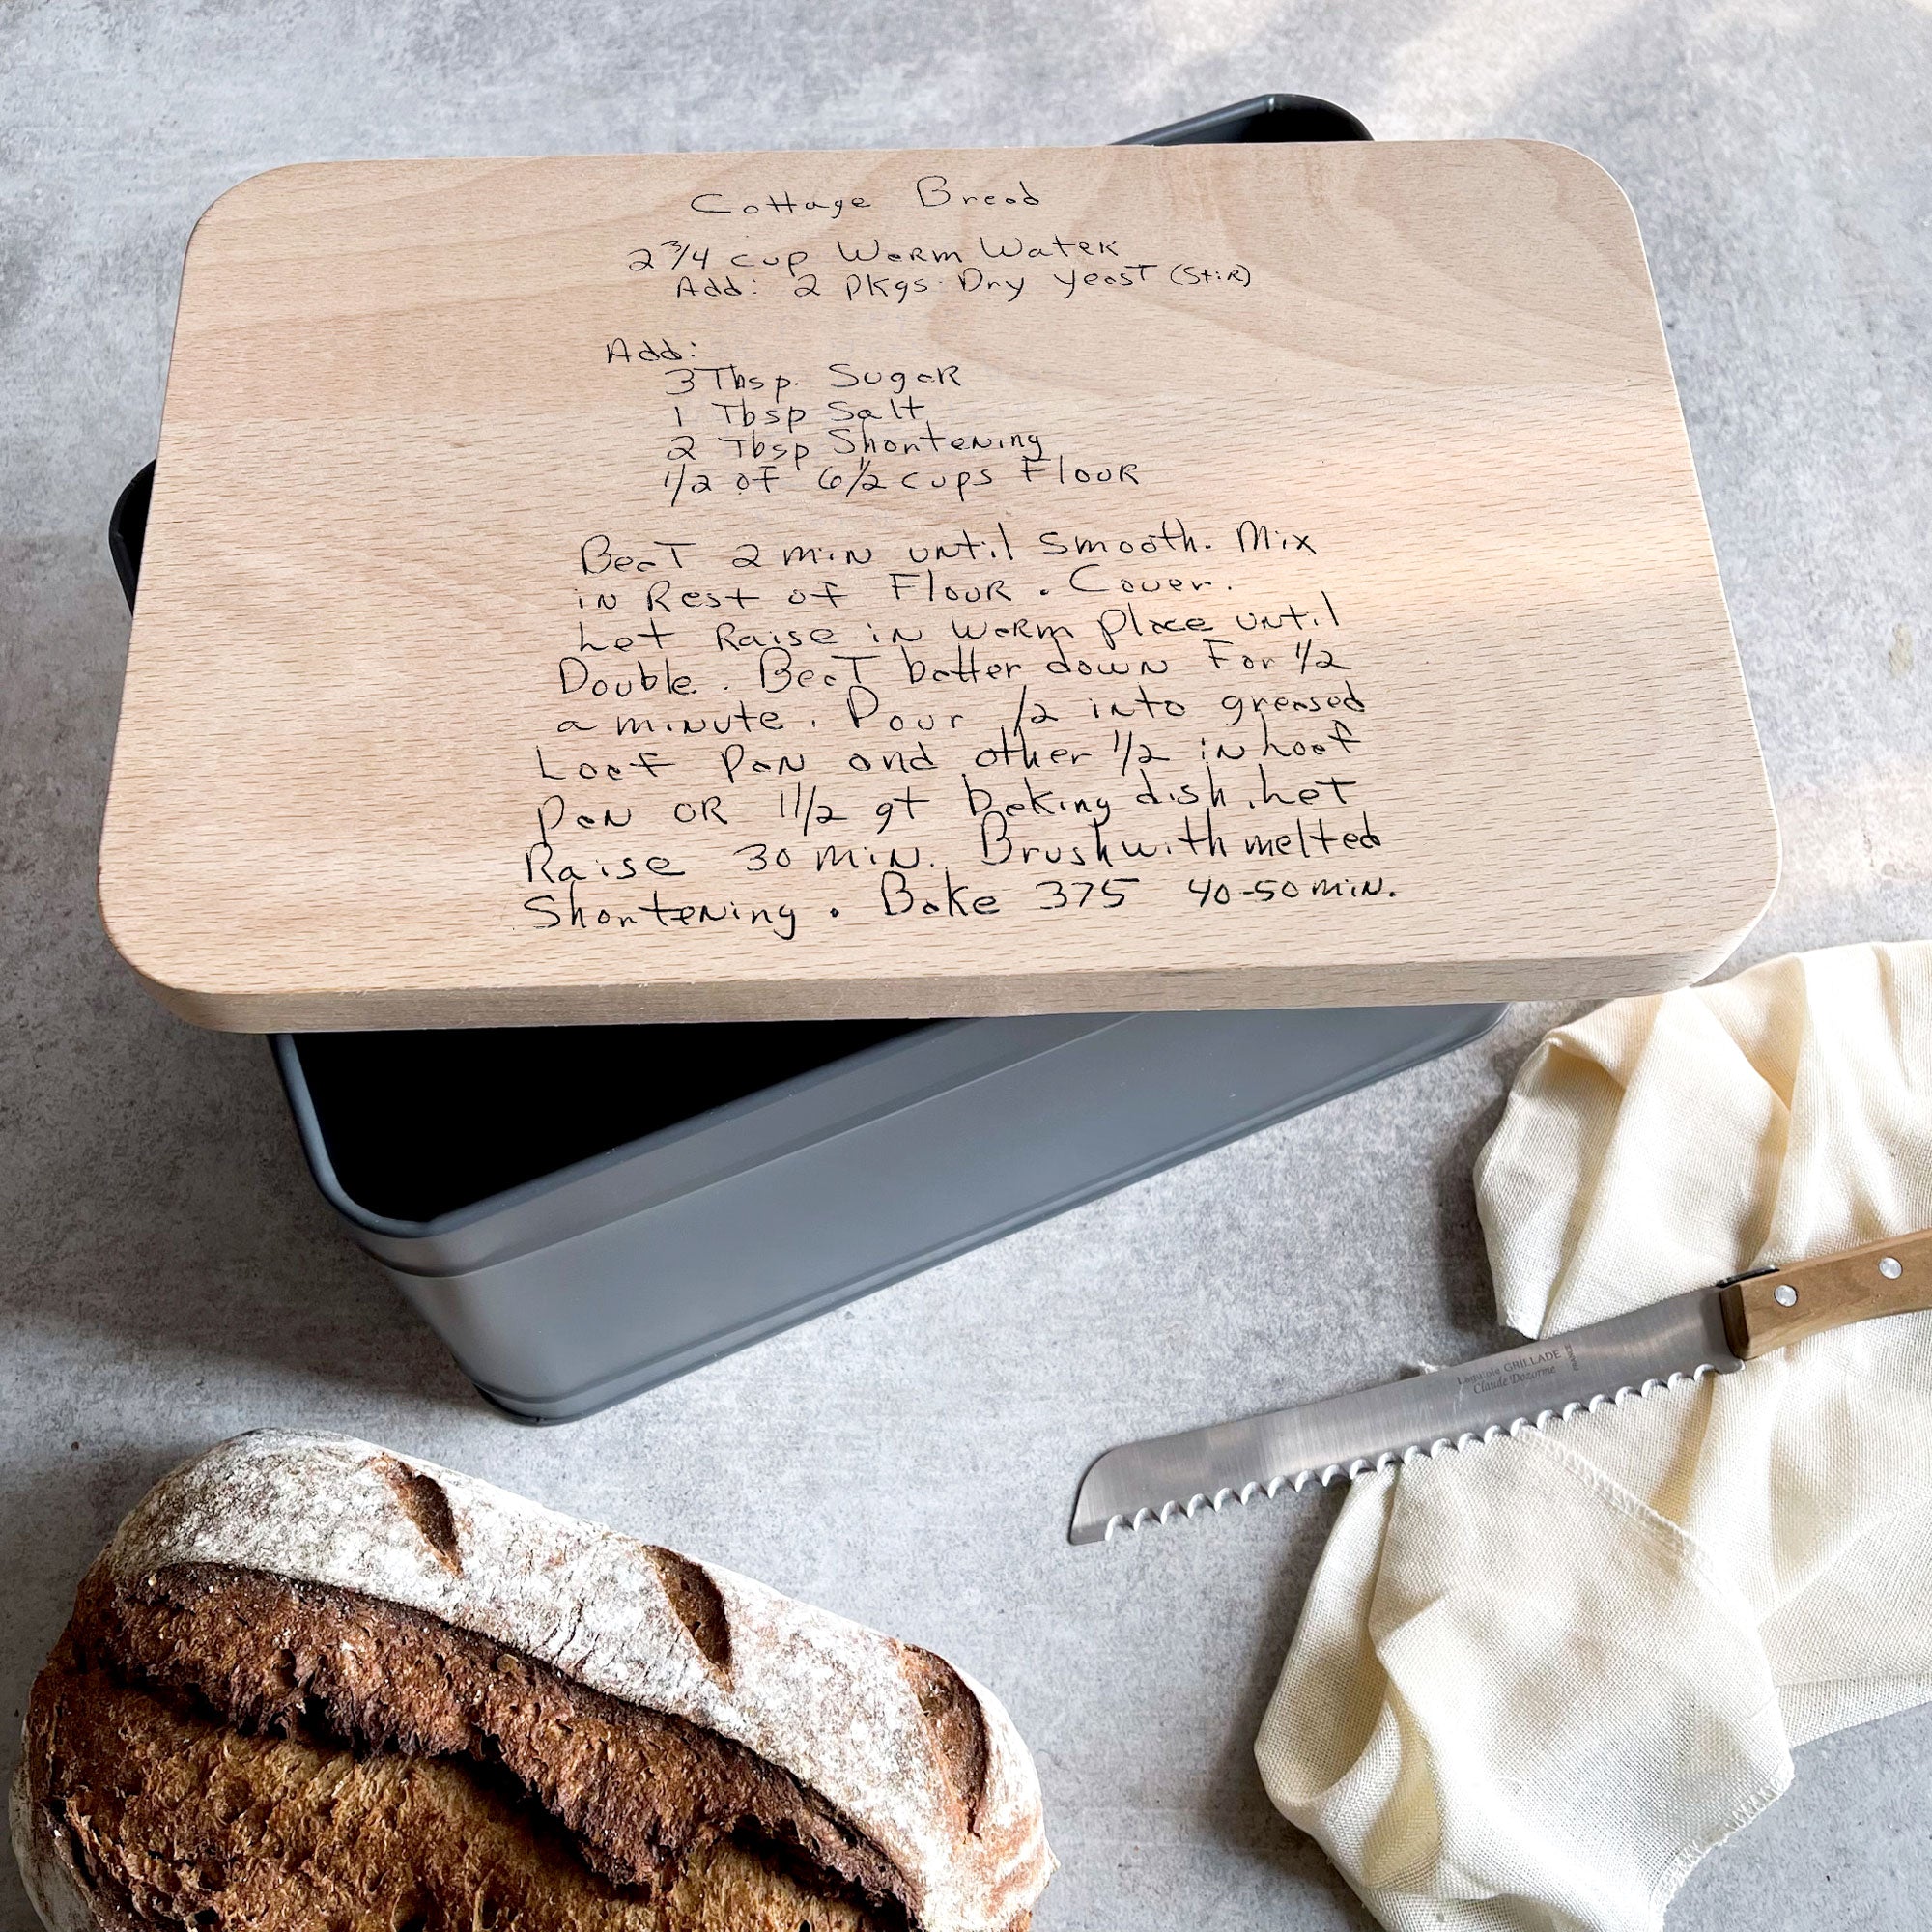 Cottage Bread
2 3/4 cup Warm Water
Add: 2 pkgs. Dry yeast (Stir)
Add:
3 Tbsp. Sugar
1 Tbsp Salt
2 Tbsp Shortening
1/2 of 6 1/2 cups Flour
Beat 2 min until smooth. Mix
in Rest of Flour. Cover.
Let Raise in warm place until
Double. Beat batter down For 1/2
a minute. Pour 1/2 into greased
Loaf Pan and other 1/2 in Loaf
Pan OR 1 1/2 qt baking dish. Let
Raise 30 min. Brush with melted
Shortening. Bake 375 40-50 min.
Laguiole GRILLADE
Claude Dozorme
FRANCE